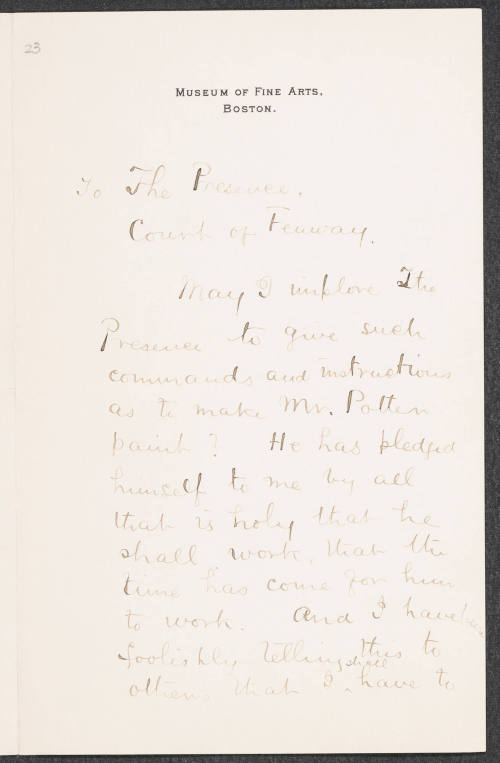 23
MUSEUM OF FINE ARTS,
BOSTON.
To The Presence.
Court of Fenway.
May I implore The
Presence to give such
commands and instructions
as to make Mr. Potter
paint? He has pledged
himself to me by all
that is holy that he
shall work, that the
time has come for him
to work. And I have been
foolishly telling this to
others that I shall have to